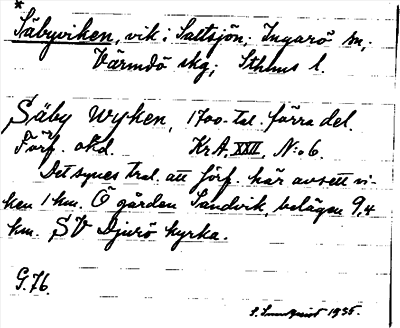 *
Säbyviken, vik i Saltsjön; Ingarö sn;
Värmdö skg; Sthlms l.
Säby Wyken, 1700-tal. förra del.
Förf. okd. KrA, XXII, N:o 6.
Det synes tral. att förf. här avsett vi-
ken 1 km. Ö gården Sandvik, belägen 9,4
km. SV Djurö kyrka.
G.76.
1935.